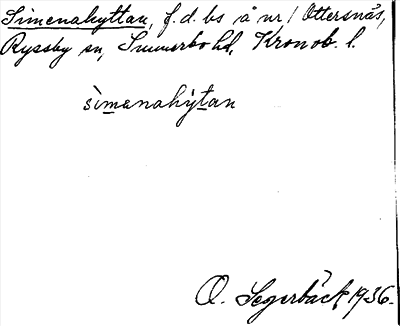 Simenahyttan, f.d. bs å nr 1 Ottersnäs,
Ryssby sn, Sunnerbo hd, Kronob. l.
sìmenahỳtan
O. Segerbäck 1936.